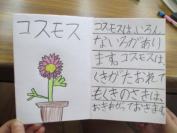 コスモス
コスモスは、いろん
ないろがあり
ます。コスモスは
くきがたおれて
もくきのさきは、
おきあがっておきます